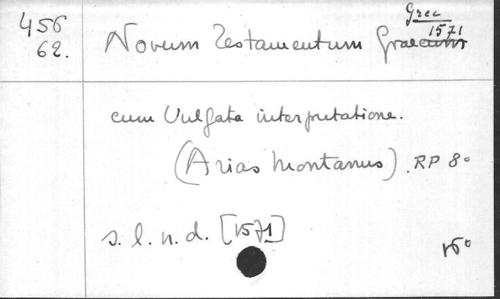 456
62.
Grec
1571
Novum Testamentum Graecum
cum Vulgata interpretatione.
(Arias Montanus). RP 8º
s. l. n. d. [1571]